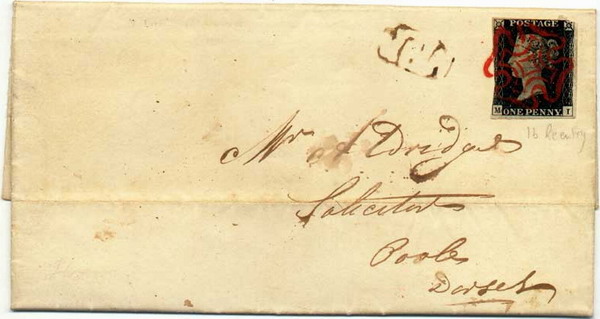 POSTAGE
M I
ONE PENNY
1b Reentry
Mr Aldridge
Solicitor
Poole
Dorset